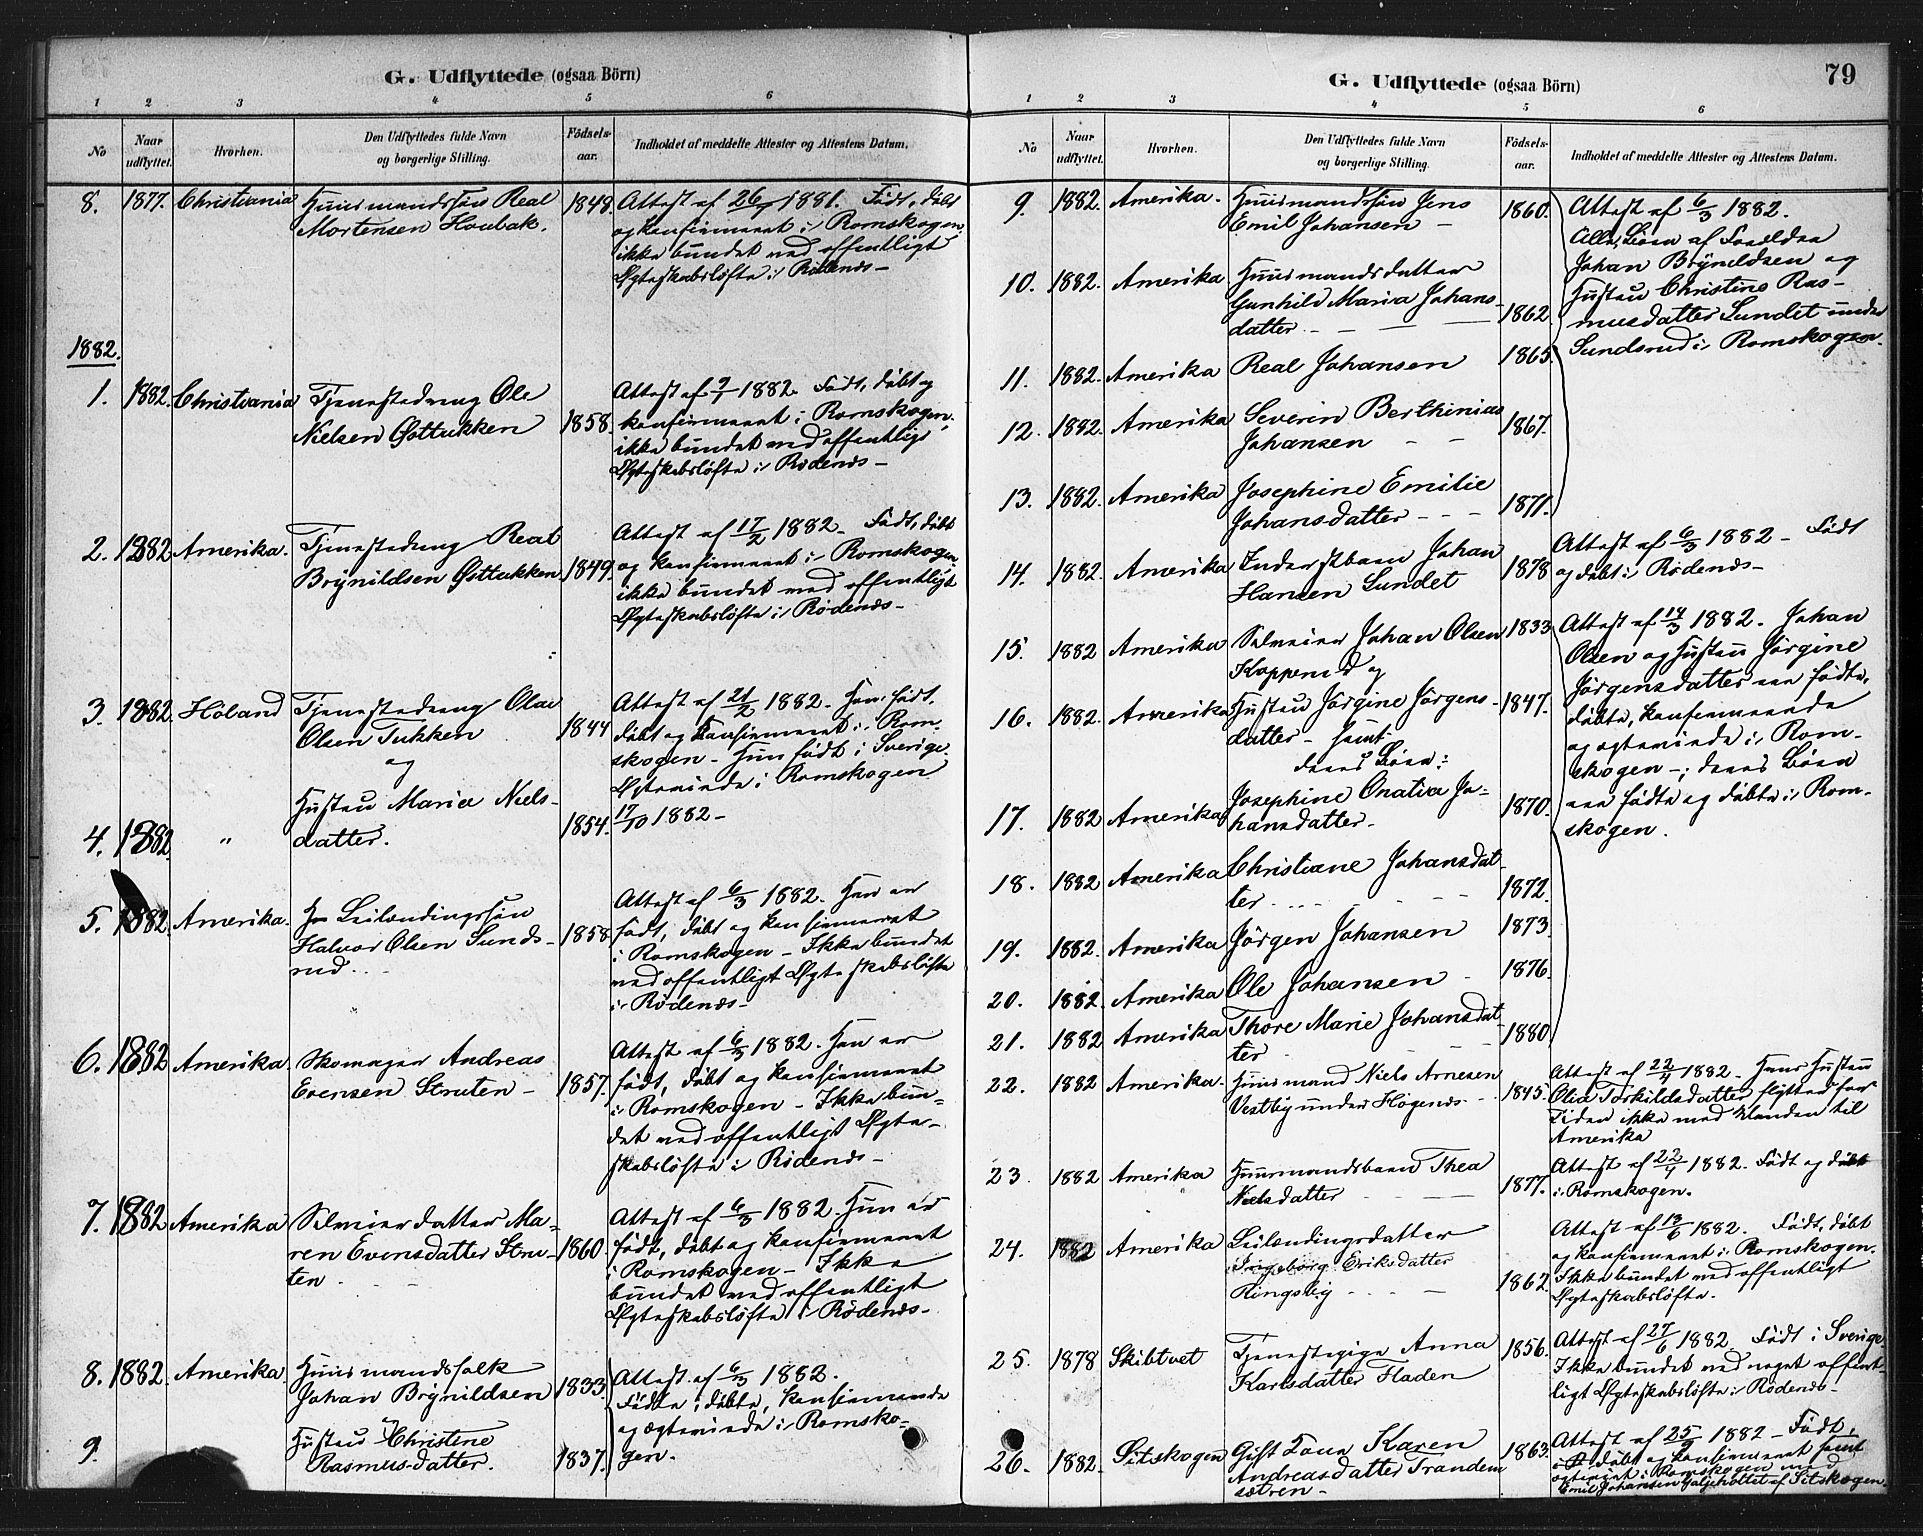 G. Udflyttede (ogsaa Börn)
1 2 3 4 5 6
No
Naar udflyttet.
Hvorhen.
Den Udflyttedes fulde Navn og borgerlige Stilling.
Födselsaar.
Indholdet af meddelte Attester og Attestens Datum.
8. 1877. Christiania Huusmandssön Real 1848. Attest af 26/ 1881. Födt, döbt
Mortensen Houbak. og konfirmeret i Romskogen,
ikke bundet ved offentligt
Ægteskabslöfte i Rödenes-
1882.
1. 1882. Christiania Tjenestedreng Ole Attest af 1882. Födt, döbt og
Nielsen Östtukken 1858. konfirmeret i Romskogen,
ikke bundet ved offentligt
Ægteskabslöfte i Rödenes-
2. 1882 Amerika. Tjenestedreng Real Attest af 17/2 1882- Födt, döbt
Brynildsen Östtukken 1849. og konfirmeret i Romskogen,
ikke bundet ved offentligt
Ægteskabslöfte i Rödenes-
3. 1882. Höland Tjenestedreng Olav Attest af 21/2 1882- Han födt,
Olsen Tukken 1844 döbt og konfirmeret i Rom-
og skogen- Hun födt i Sverige.
Ægteviede i Romskogen
Hustru Maria Niels- 17/10 1882-
4. 1882. " datter. 1854.
5. 1882. Amerika. Leilændingssön Attest af 6/3 1882. Han er
Halvor Olsen Sunds- 1858 födt, döbt og konfirmeret
rud. i Romskogen- Ikke bundet
ved offentligt Ægteskabslöfte
i Rödenes-
6. 1882 Amerika. Skomager Andreas Attest af 6/3 1882. Han er
Evensen Struten- 1857. födt, döbt og konfirmeret
i Romskogen- Ikke bun-
det ved offentligt Ægte-
skabslöfte i Rödenes-
7. 1882 Amerika Selveierdatter Ma- Attest af 6/3 1882. Hun er
ren Evensdatter Stru- 1860. födt, döbt og konfirmeret
ten. i Romskogen- Ikke
bundet ved offentligt
Ægteskabslöfte i Rödenes-
8. 1882. Amerika. Huusmandsfolk Attest af 6/3 1882.
Johan Brynildsen 1833. Födte, döbte, konfirmerede
og ægteviede i Romsko-
9. Hustru Christine gen.
Rasmusdatter. 1837.
G. Udflyttede (ogsaa Börn)
79
1 2 3 4 5 6
No
Naar udflyttet.
Hvorhen.
Den Udflyttedes fulde Navn og borgerlige Stilling.
Födselsaar.
Indholdet af meddelte Attester og Attestens Datum.
9. 1882. Amerika. Huusmandssön Jens 1860. Attest af 6/3 1882.
Emil Johansen- Alle Börn af Forældre
10. 1882. Amerika Huusmandsdatter Johan Brynildsen og
Gunhild Maria Johans- 1862. Hustru Christine Ras-
datter- musdatter Sundet under
11. 1882. Amerika Real Johansen 1865. Sundsrud i Romskogen.
12. 1882. Amerika Severin Berthinius 1867.
Johansen
13. 1882. Amerika Josephine Emilie 1871.
Johansdatter- Attest af 6/3 1882- Födt
14. 1882. Amerika Inderstbarn Johan 1878 og döbt i Rödenes-
Hansen Sundet
15. 1882 Amerika Selveier Johan Olsen 1833 Attest af 14/3 1882. Johan
Kopperud og Olsen og Hustru Jörgine
16. 1882. Amerika Hustru Jörgine Jörgens- 1847. Jörgensdatter ere födte,
datter- samt döbte, konfirmerede
deres Börn: og ægteviede i Rom-
17. 1882 Amerika Josephine Onatia Jo- 1870. skogen-; deres Börn
hansdatter- ere födte og döbte i Rom-
skogen.
18. 1882 Amerika Christiane Johansdat-
ter 1872.
19. 1882. Amerika Jörgen Johansen 1873.
20. 1882. Amerika Ole Johansen 1876.
21. 1882 Amerika Thore Marie Johansdat-
ter 1880.
22. 1882 Amerika. Huusmand Niels Arnesen 1845. Attest af 22/4 1882. Hans Hustru
Vestby under Högenæs Olia Torkildsdatter flytted for
Tiden ikke med Manden til
Amerika
23 1882 Amerika Huusmandsbarn Thea 1877. Attest af 22/4 1882. Födt og döbt
Nielsdatter i Romskogen.
24. 1882 Amerika Leilændingsdatter Attest af 13/6 1882. Födt, döbt
Ingeborg Eriksdatter og konfirmeret i Romskogen.
Ringsby 1862. Ikke bundet ved offentligt
Ægteskabslöfte.
25. 1878 Skibtvet Tjenestepige Anna 1856. Attest af 27/6 1882. Födt i Sverige
Karlsdatter Fladen Ikke bundet ved noget offent-
ligt Ægteskabslöfte i Rödenes-
26. 1882. Sitskogen Gift Kone Karen 1863. Attest af 25/9 1882- Födt,
Andreasdatter Trandem- döbt og konfirmeret samt
sætren- ægteviet i Romskogen med
Emil Johansen af Sitskogen.